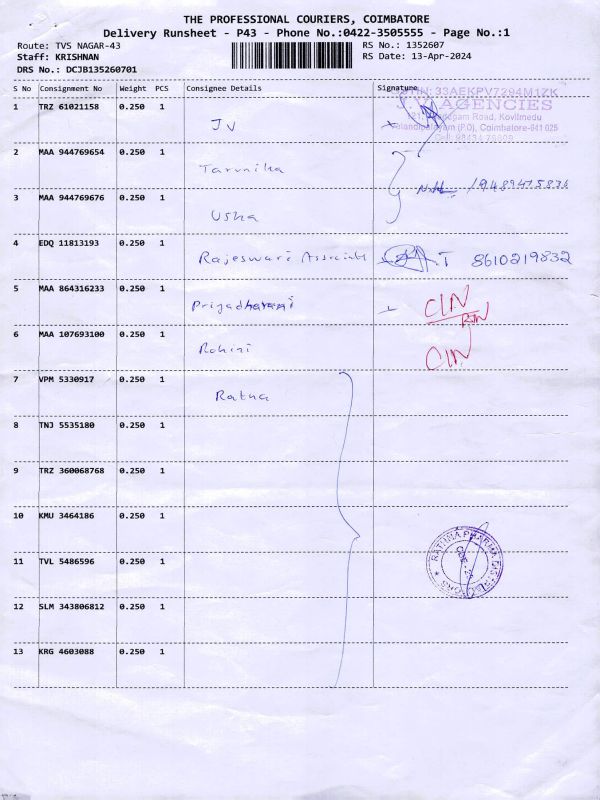 THE PROFESSIONAL COURIERS, COIMBATORE
Delivery Runsheet - P43 - Phone No.:0422-3505555 - Page No.:1
Route: TVS NAGAR-43 RS No.: 1352607
Staff: KRISHNAN RS Date: 13-Apr-2024
DRS No.: DCJB135260701
S No Consignment No Weight PCS Consignee Details Signature
33AEKPV7294M1ZK
AGENCIES
1 TRZ 61021158 0.250 1 JV
Road, Kovilmedu
(P.O), Coimbatore-641 025
2 MAA 944769654 0.250 1 Tarunika
3 MAA 944769676 0.250 1 Usha
4 EDQ 11813193 0.250 1 Rajeswari T 8610219832
5 MAA 864316233 0.250 1 CIN
6 MAA 107693100 0.250 1 Rohini CIN
7 VPM 5330917 0.250 1 Ratna
8 TNJ 5535180 0.250 1
9 TRZ 360068768 0.250 1
10 KMU 3464186 0.250 1
RATHNA PHARMA
11 TVL 5486596 0.250 1
12 SLM 343806812 0.250 1
13 KRG 4603088 0.250 1